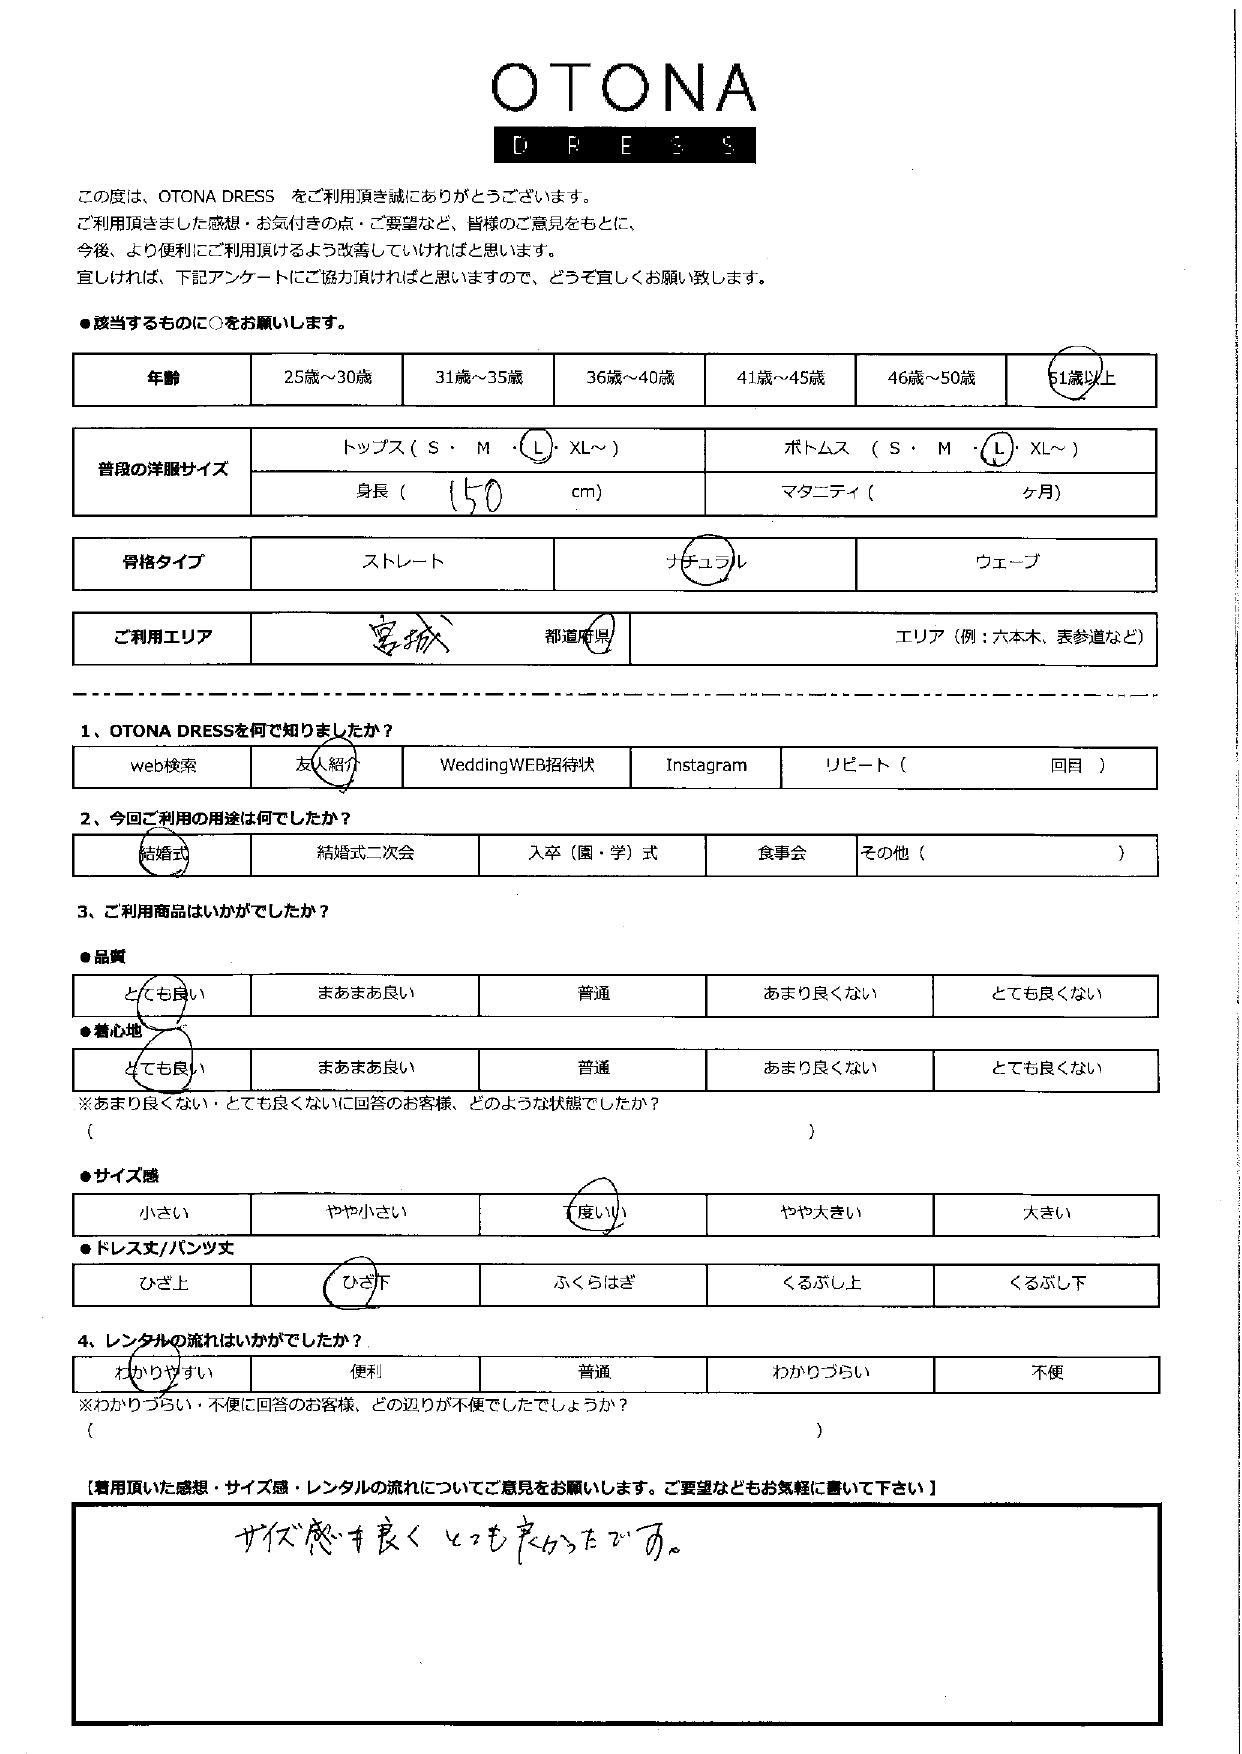 OTONA
DRESS
この度は、OTONA DRESS をご利用頂き誠にありがとうございます。
ご利用頂きました感想・お気付きの点・ご要望など、皆様のご意見をもとに、
今後、より便利にご利用頂けるよう改善していければと思います。
宜しければ、下記アンケートにご協力頂ければと思いますので、どうぞ宜しくお願い致します。
●該当するものに○をお願いします。
年齢 25歳～30歳 31歳～35歳 36歳～40歳 41歳～45歳 46歳～50歳 51歳以上
普段の洋服サイズ トップス ( S ・ M ・ L ・ XL～ ) ボトムス ( S ・ M ・ L ・ XL～ )
身長 ( 150 cm) マタニティ ( ヶ月)
骨格タイプ ストレート ナチュラル ウェーブ
ご利用エリア 宮城 都道府県 エリア（例：六本木、表参道など）
1、OTONA DRESSを何で知りましたか？
web検索 友人紹介 WeddingWEB招待状 Instagram リピート（ 回目 ）
2、今回ご利用の用途は何でしたか？
結婚式 結婚式二次会 入卒（園・学）式 食事会 その他（ ）
3、ご利用商品はいかがでしたか？
●品質
とても良い まあまあ良い 普通 あまり良くない とても良くない
●着心地
とても良い まあまあ良い 普通 あまり良くない とても良くない
※あまり良くない・とても良くないに回答のお客様、どのような状態でしたか？
( )
●サイズ感
小さい やや小さい 丁度いい やや大きい 大きい
●ドレス丈/パンツ丈
ひざ上 ひざ下 ふくらはぎ くるぶし上 くるぶし下
4、レンタルの流れはいかがでしたか？
わかりやすい 便利 普通 わかりづらい 不便
※わかりづらい・不便に回答のお客様、どの辺りが不便でしたでしょうか？
( )
【着用頂いた感想・サイズ感・レンタルの流れについてご意見をお願いします。ご要望などもお気軽に書いて下さい】
サイズ感も良くとても良かったです。